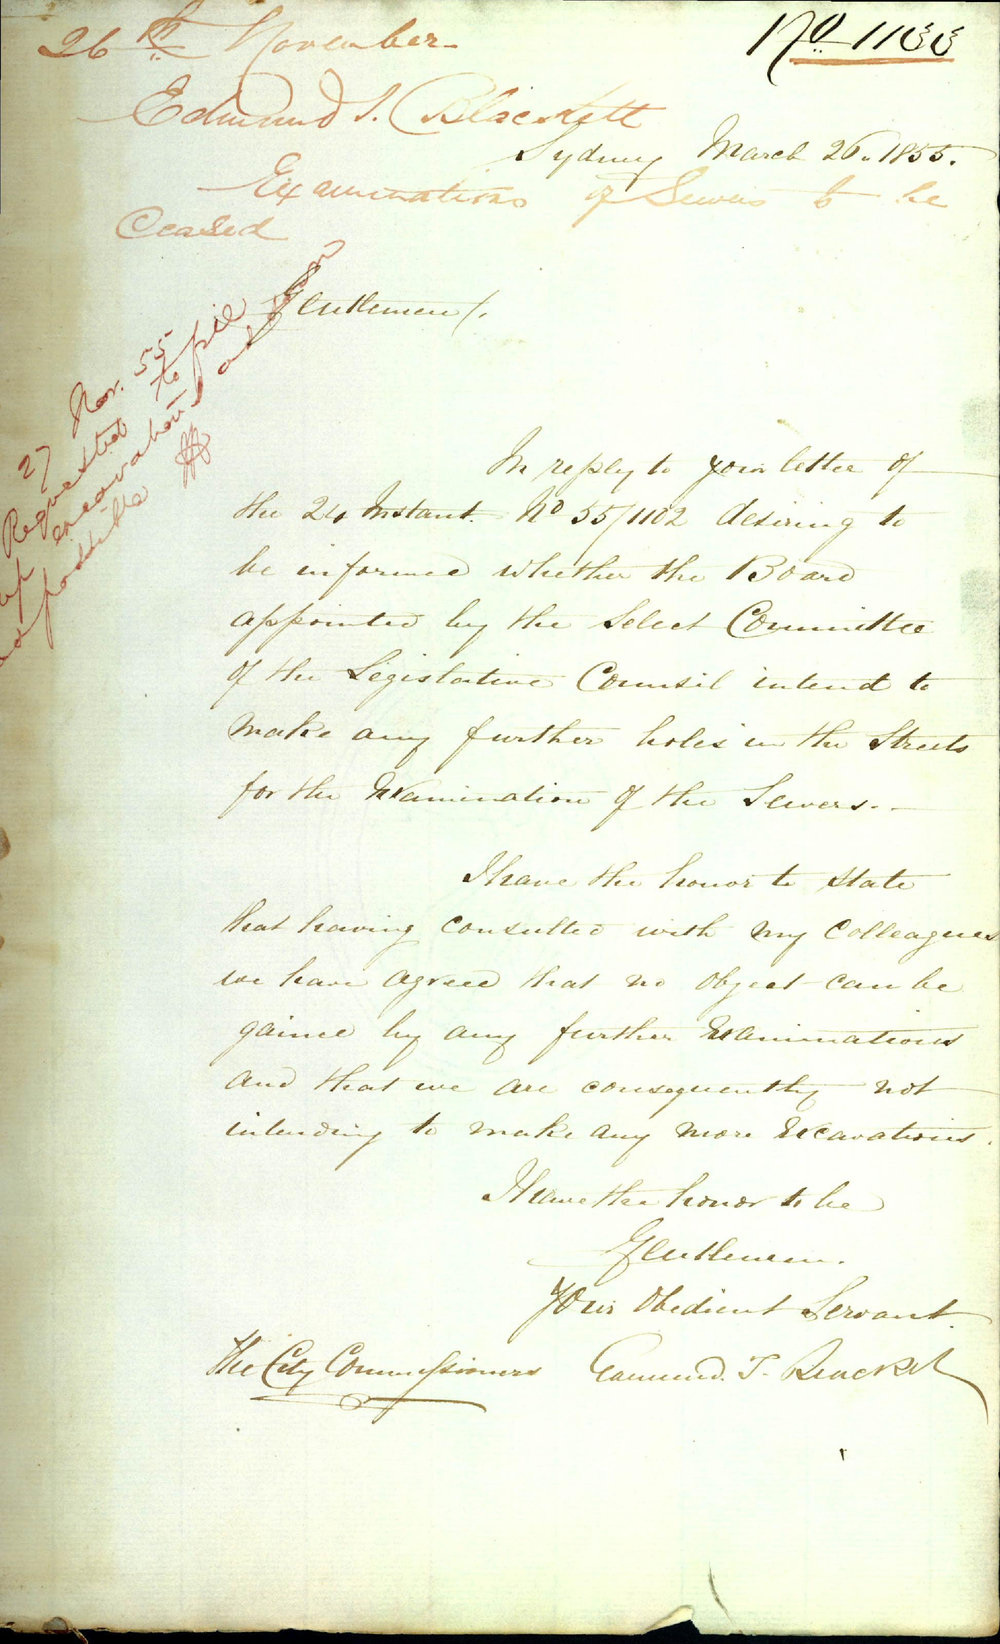 26th November
No 1133
Edmund T. Blackett
Sydney March 26. 1855.
Examinations of Sewers to be
Ceased
27 Nov. 55
Requested to fill
up excavations as soon
as possible
Gentlemen/.
In reply to your letter of
the 24 Instant. No 55/1102 desiring to
be informed whether the Board
appointed by the Select Committee
of the Legislative Counsil intend to
make any further holes in the Streets
for the Examination of the Sewers.
I have the honor to state
that having consulted with my Colleagues
we have agreed that no object can be
gained by any further Examinations
and that we are consequently not
intending to make any more Excavations.
I have the honor to be
Gentlemen.
Your Obedient Servant.
The City Commissioners Edmund. T. Blacket